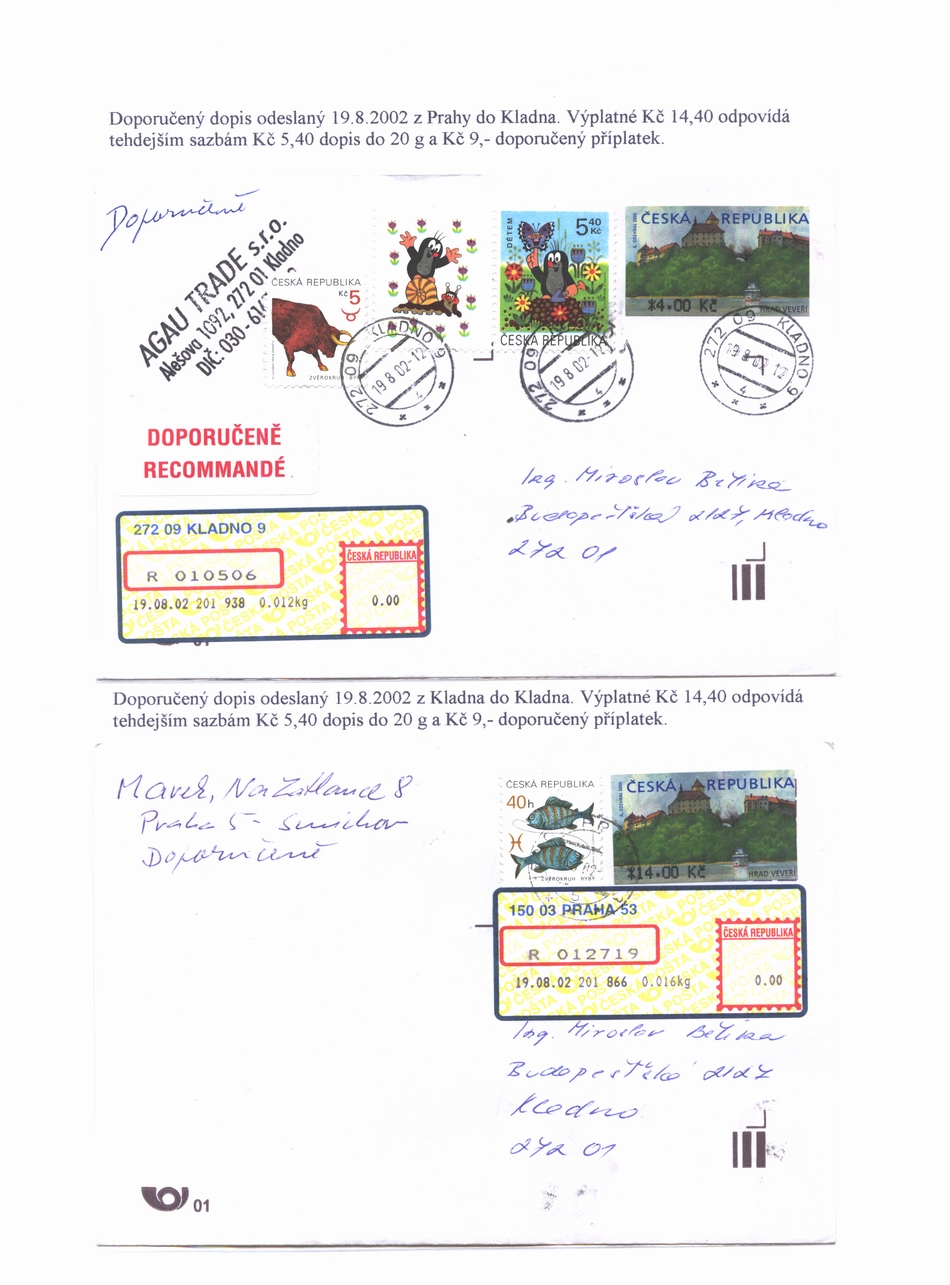 Doporučený dopis odeslaný 19.8.2002 z Prahy do Kladna. Výplatné Kč 14,40 odpovídá
tehdejším sazbám Kč 5,40 dopis do 20 g a Kč 9,- doporučený příplatek.
Doporučeně
AGAU TRADE s.r.o.
Alešova 1092, 272 01 Kladno
DIČ: 030 - 61
ČESKÁ REPUBLIKA
Kč 5
ZVĚROKRUH
DĚTEM
5 40
Kč
ČESKÁ REPUBLIKA
ČESKÁ REPUBLIKA
*4.00 Kč
HRAD VEVEŘÍ
272 09 KLADNO 9
19 8 02-12
4
272 09
19 8 02-12
4
272 09 KLADNO 9
19 8 02 12
4
DOPORUČENĚ
RECOMMANDÉ
Ing. Miroslav Bětíka
Budapešťská 2127, Kladno
272 01
272 09 KLADNO 9
R 010506
ČESKÁ REPUBLIKA
19.08.02 201 938 0.012kg
0.00
01
Doporučený dopis odeslaný 19.8.2002 z Kladna do Kladna. Výplatné Kč 14,40 odpovídá
tehdejším sazbám Kč 5,40 dopis do 20 g a Kč 9,- doporučený příplatek.
Marek, Na Zatlance 8
Praha 5 - Smíchov
Doporučeně
ČESKÁ REPUBLIKA
40h
ZVĚROKRUH RYBY
ČESKÁ REPUBLIKA
*14.00 Kč
HRAD VEVEŘÍ
150 03 PRAHA 53
R 012719
ČESKÁ REPUBLIKA
19.08.02 201 866 0.016kg
0.00
Ing. Miroslav Bětíka
Budapešťská 2127
Kladno
272 01
01